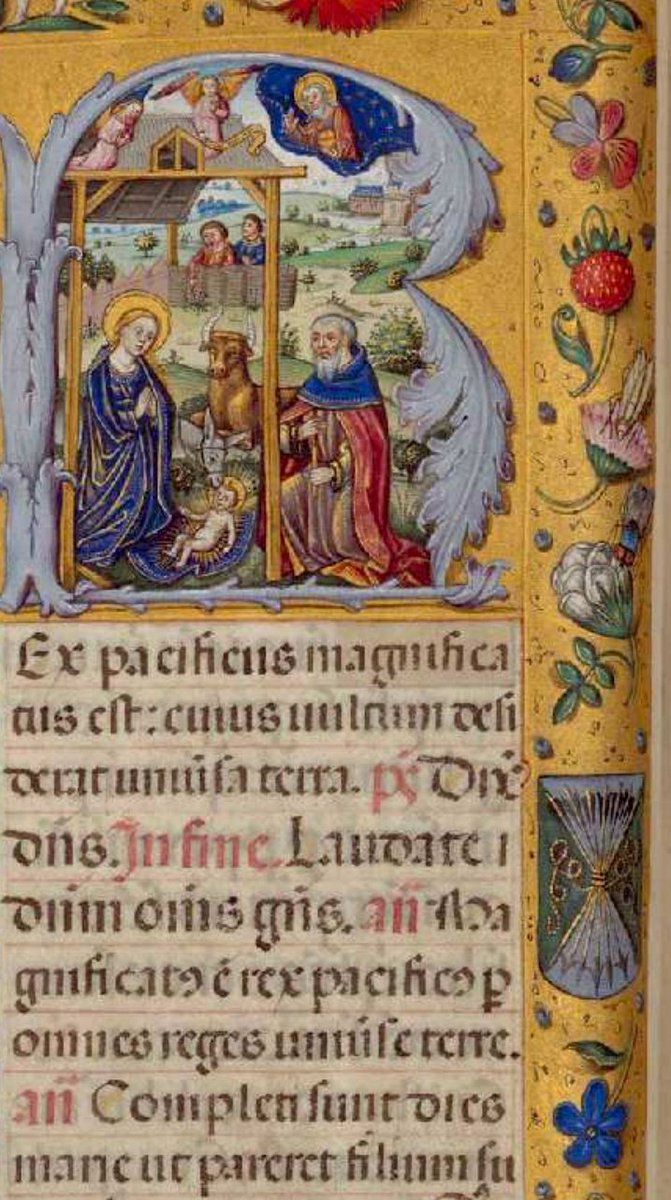 REx pacificus magnifica
tus est: cuius uultum desi
derat uniũsa terra. ps̃ Dix̃
dñs. In fine. Laudate
dñm om̃s gñs. añ Ma
gnificatꝰ ẽ rex pacificꝰ ꝑ
omnes reges uniũse terre.
añ Completi sunt dies
marie ut pareret filium su